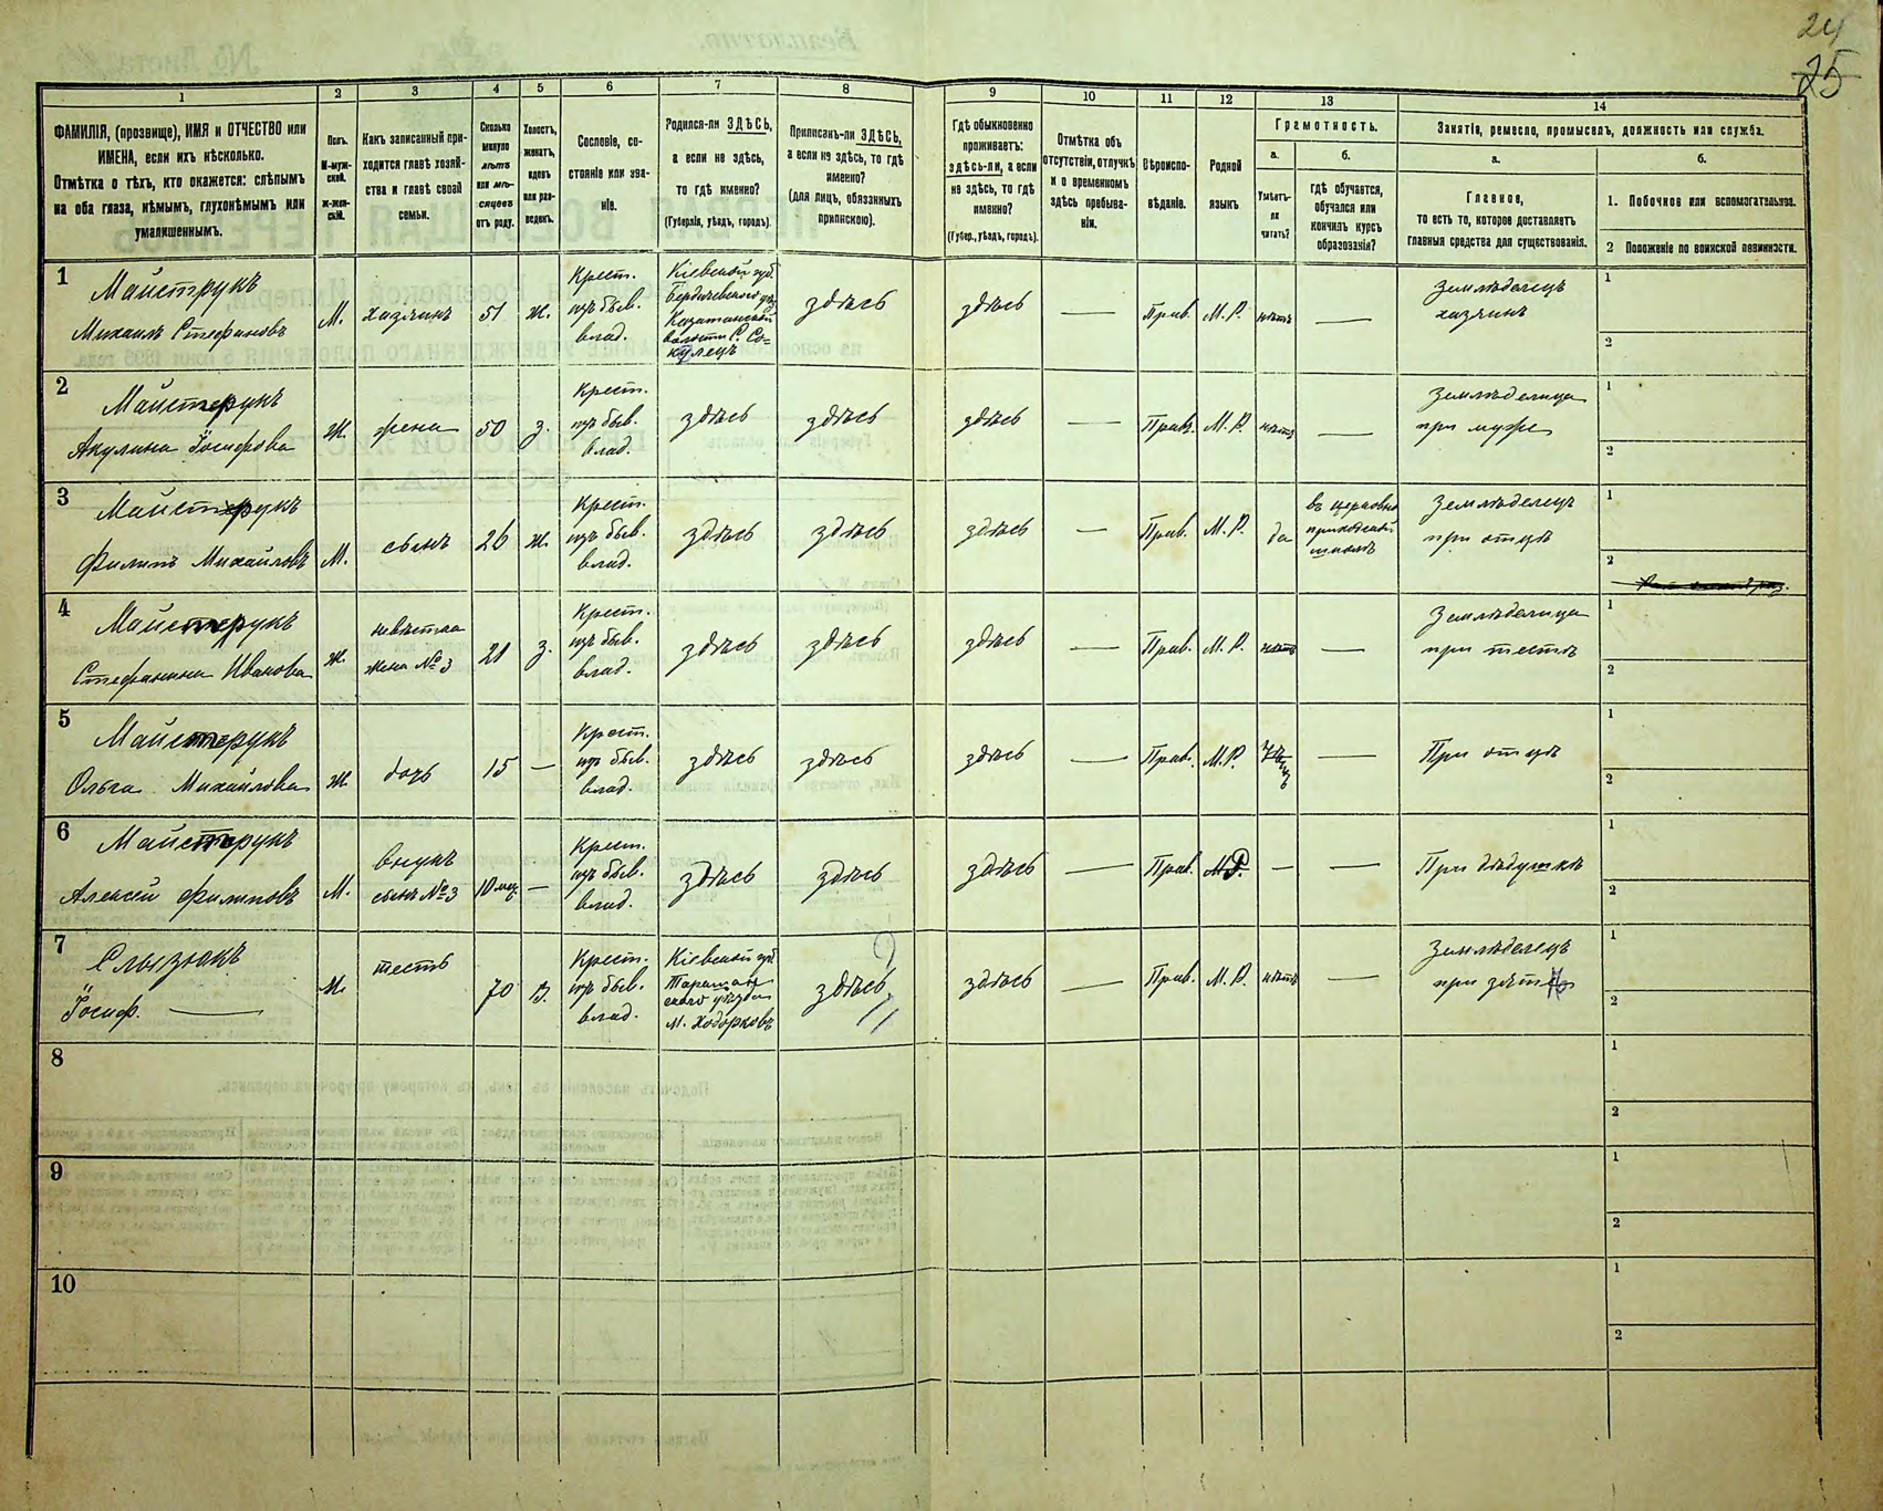 24
25
1
2
3
4
5
6
7
8
9
10
11
12
13
14
ФАМИЛІЯ, (прозвище), ИМЯ и ОТЧЕСТВО или
ИМЕНА, если ихъ нѣсколько.
Отмѣтка о тѣхъ, кто окажется: слѣпымъ
на оба глаза, нѣмымъ, глухонѣмымъ или
умалишеннымъ.
Полъ.
М-мужской.
Ж-женскій.
Какъ записанный при-
ходится главѣ хозяй-
ства и главѣ своей
семьи.
Сколько
минуло
лѣтъ
или мѣ-
сяцевъ
отъ роду.
Холостъ,
женатъ,
вдовъ
или раз-
веденъ.
Сословіе, со-
стояніе или зва-
ніе.
Родился-ли ЗДѢСЬ,
а если не здѣсь,
то гдѣ именно?
(Губернія, уѣздъ, городъ).
Приписанъ-ли ЗДѢСЬ,
а если не здѣсь, то гдѣ
именно?
(для лицъ, обязанныхъ
припискою).
Гдѣ обыкновенно
проживаетъ:
здѣсь-ли, а если
не здѣсь, то гдѣ
именно?
(Губер., уѣздъ, городъ).
Отмѣтка объ
отсутствіи, отлучкѣ
и о временномъ
здѣсь пребыва-
ніи.
Вѣроиспо-
вѣданіе.
Родной
языкъ.
Грамотность.
а.
б.
Умѣетъ-
ли
читать?
гдѣ обучается,
обучался или
кончилъ курсъ
образованія?
Занятіе, ремесло, промыселъ, должность или служба.
а.
б.
Главное,
то есть то, которое доставляетъ
главныя средства для существованія.
1. Побочное или вспомогательное.
2 Положеніе по воинской повинности.
1
Майструкъ
Михаилъ Стефановъ
М.
хазяинъ
51
ж.
Крест.
изъ быв.
влад.
Кіевской губ.
Бердичевскаго уѣз.
Казатинской
волости С. Со-
кулецъ
здѣсь
здѣсь
—
Прав.
М. Р.
нѣтъ
—
Земледѣлецъ
хазяинъ
1
2
2
Майструкъ
Акулина Іосифова
Ж.
жена
50
з.
Крест.
изъ быв.
влад.
здѣсь
здѣсь
здѣсь
—
Прав.
М. Р.
нѣтъ
—
Земледѣлица
при мужѣ
1
2
3
Майструкъ
Филипъ Михайловъ
М.
сынъ
26
ж.
Крест.
изъ быв.
влад.
здѣсь
здѣсь
здѣсь
—
Прав.
М. Р.
да
въ церковно
приходской
школѣ
Земледѣлецъ
при отцѣ
1
2
4
Майструкъ
Стефанина Иванова
ж.
невѣстка
жена №3
21
з.
Крест.
изъ быв.
влад.
здѣсь
здѣсь
здѣсь
—
Прав.
М. Р.
нѣтъ
—
Земледѣлица
при тестѣ
1
2
5
Майструкъ
Ольга Михайлова
ж
дочь
15
—
Крест.
изъ быв.
влад.
здѣсь
здѣсь
здѣсь
—
Прав.
М. Р.
—
При отцѣ
1
2
6
Майструкъ
Алексѣй Филиповъ
М.
внукъ
сынъ №3
10 мец.
—
Крест.
изъ быв.
влад.
здѣсь
здѣсь
здѣсь
—
Прав.
М. Р.
—
—
При дѣдушкѣ
1
2
7
Слызюкъ
Іосиф. —
М.
тесть
70
В.
Крест.
изъ быв.
влад.
Кіевской губ.
Таращан
скаго уѣзда
М. Ходорковъ
здѣсь
здѣсь
—
Прав.
М. Р.
нѣтъ
—
Земледѣлецъ
при зятѣ
1
2
8
1
2
9
1
2
10
1
2